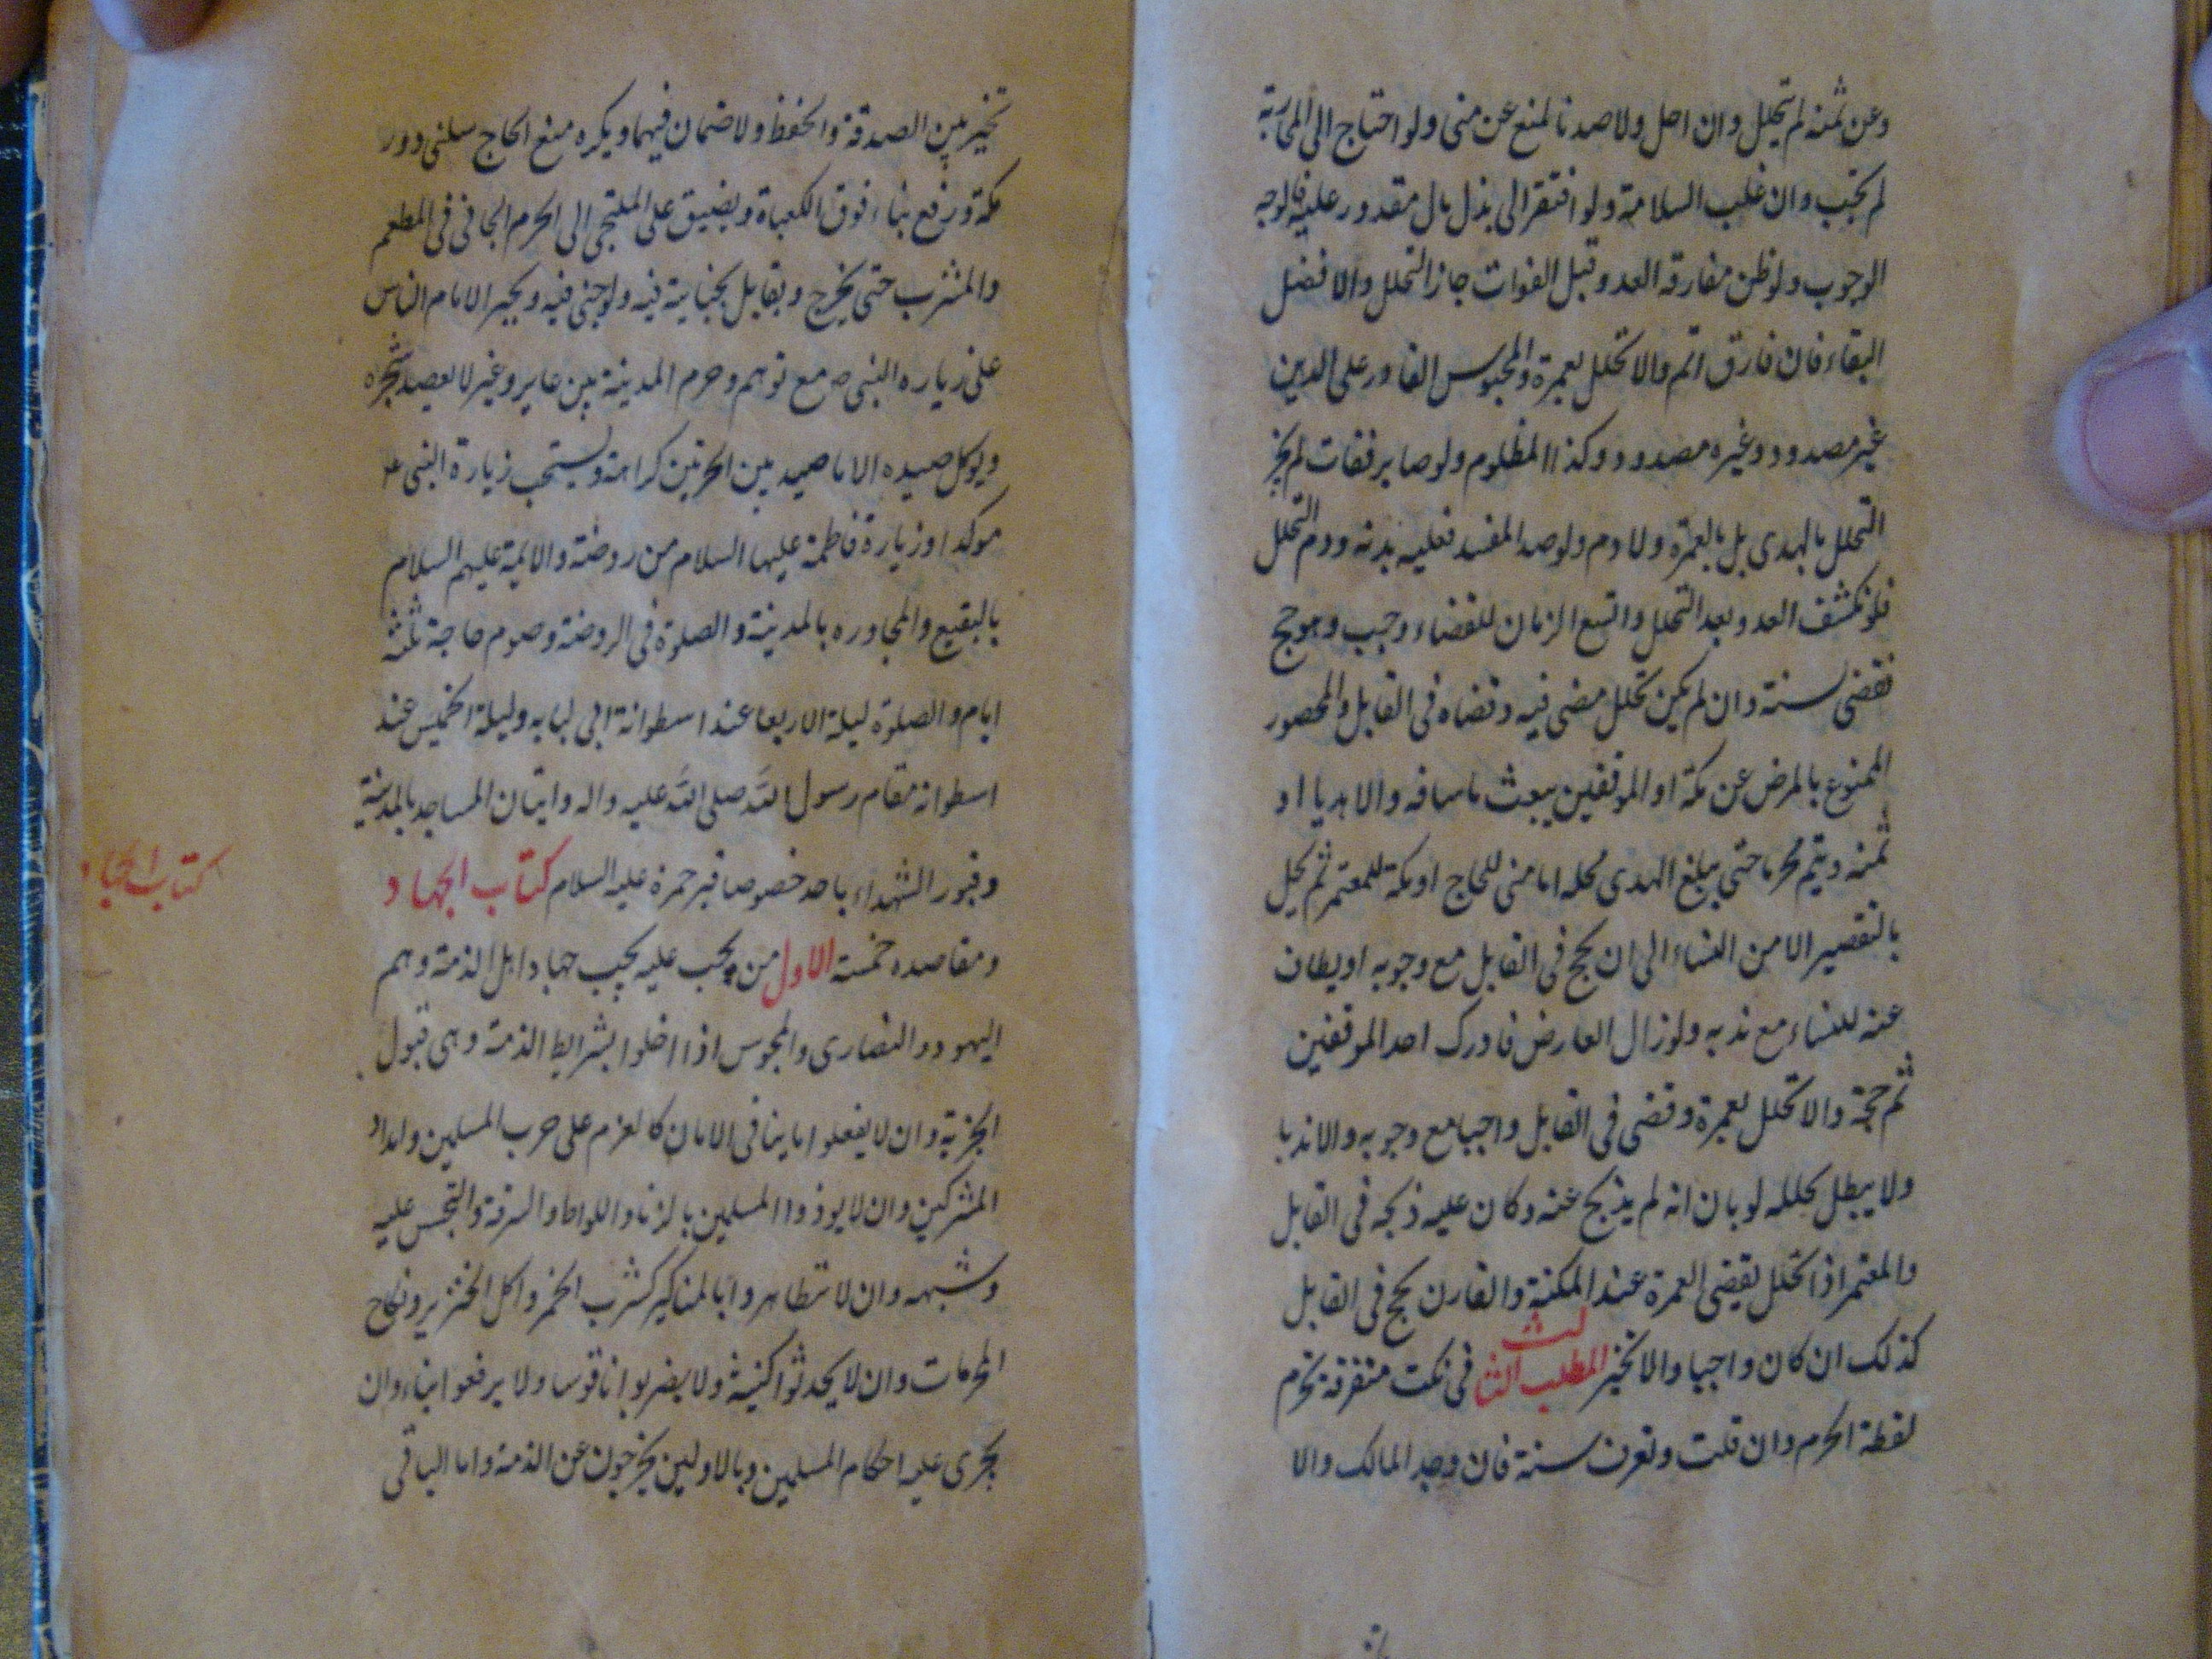 وعن ثمنه لم يتحلل وان احل ولا صد بالمنع عن منى ولو احتاج الى المحاربة
لم تجب وان غلب السلامة ولو افتقر الى بذل مال مقدور عليه فالوجه
الوجوب ولو ظن مفارقة العدو قبل الفوات جاز التحلل والافضل
البقاء فان فارق اتم والا تحلل بعمرة والمحبوس القادر على الدين
غير مصدود وغيره مصدود وكذا المظلوم ولو صابر ففات لم يجز
التحلل بالهدى بل بالعمرة ولا دم ولو صد المفسد فعليه بدنه ودم التحلل
فلو انكشف العدو بعد التحلل واتسع الزمان للقضاء وجب وهو حج
يقضى لسنته وان لم يكن تحلل مضى فيه وقضاه فى القابل والمحصور
الممنوع بالمرض عن مكة او الموقفين يبعث ما ساقه والا هديا او
ثمنه ويتم محرما حتى يبلغ الهدى محله اما منى للحاج او مكة للمعتمر ثم يحل
بالتقصير الا من النساء الى ان يحج فى القابل مع وجوبه او يطاف
عنه للنساء مع ندبه ولو زال العارض فادرك احد الموقفين
تم حجه والا تحلل بعمرة وقضى فى القابل واجبا مع وجوبه والا ندبا
ولا يبطل تحلله لو بان انه لم يذبح عنه وكان عليه ذبحه فى القابل
والمعتمر اذا تحلل يقضى العمرة عند المكنة والقارن يحج فى القابل
كذلك ان كان واجبا والا تخير المطلب الثالث فى نكت متفرقة تحرم
لقطة الحرم وان قلت وتعرف سنة فان وجد المالك والا
تخير بين الصدقة والحفظ ولا ضمان فيهما ويكره منع الحاج سكنى دور
مكة ورفع بناء فوق الكعباة ويضيق على الملتجى الى الحرم الجانى فى المطعم
والمشرب حتى يخرج ويقابل بجنايته فيه ولو جنى فيه ويجبر الامام الناس
على زياره النبى ص مع تركهم وحرم المدينة بين عاير وعير لا يعضد شجره
ويوكل صيده الا ما صيد بين الحرتين كراهة ويستحب زيارة النبى
موكدا وزيارة فاطمة عليها السلام من روضته والايمة عليهم السلام
بالبقيع والمجاوره بالمدينة والصلوة فى الروضة وصوم حاجة ثلثة
ايام والصلوة ليلة الاربعا عند اسطوانة ابى لبابه وليلة الخميس عند
اسطوانه مقام رسول الله صلى الله عليه واله واتيان المساجد بالمدينة
وقبور الشهداء باحد خصوصا قبر حمزة عليه السلام كتاب الجهاد
كتاب الجهاد
ومقاصده خمسة الاول من يجب عليه يجب جهاد اهل الذمة وهم
اليهود والنصارى والمجوس اذا اخلوا بشرايط الذمة وهى قبول
الجزية وان لا يفعلوا ما ينافى الامان كالعزم على حرب المسلمين وامداد
المشركين وان لا يوذوا المسلمين بالزنا واللواط والسرقة والتجسس عليه
وشبهه وان لا يتظاهروا بالمناكير كشرب الخمر واكل الخنزير ونكاح
المحرمات وان لا يحدثوا كنيسة ولا يضربوا ناقوسا ولا يرفعوا بناء وان
يجرى عليه احكام المسلمين وبالاولين يخرجون عن الذمة واما الباقى